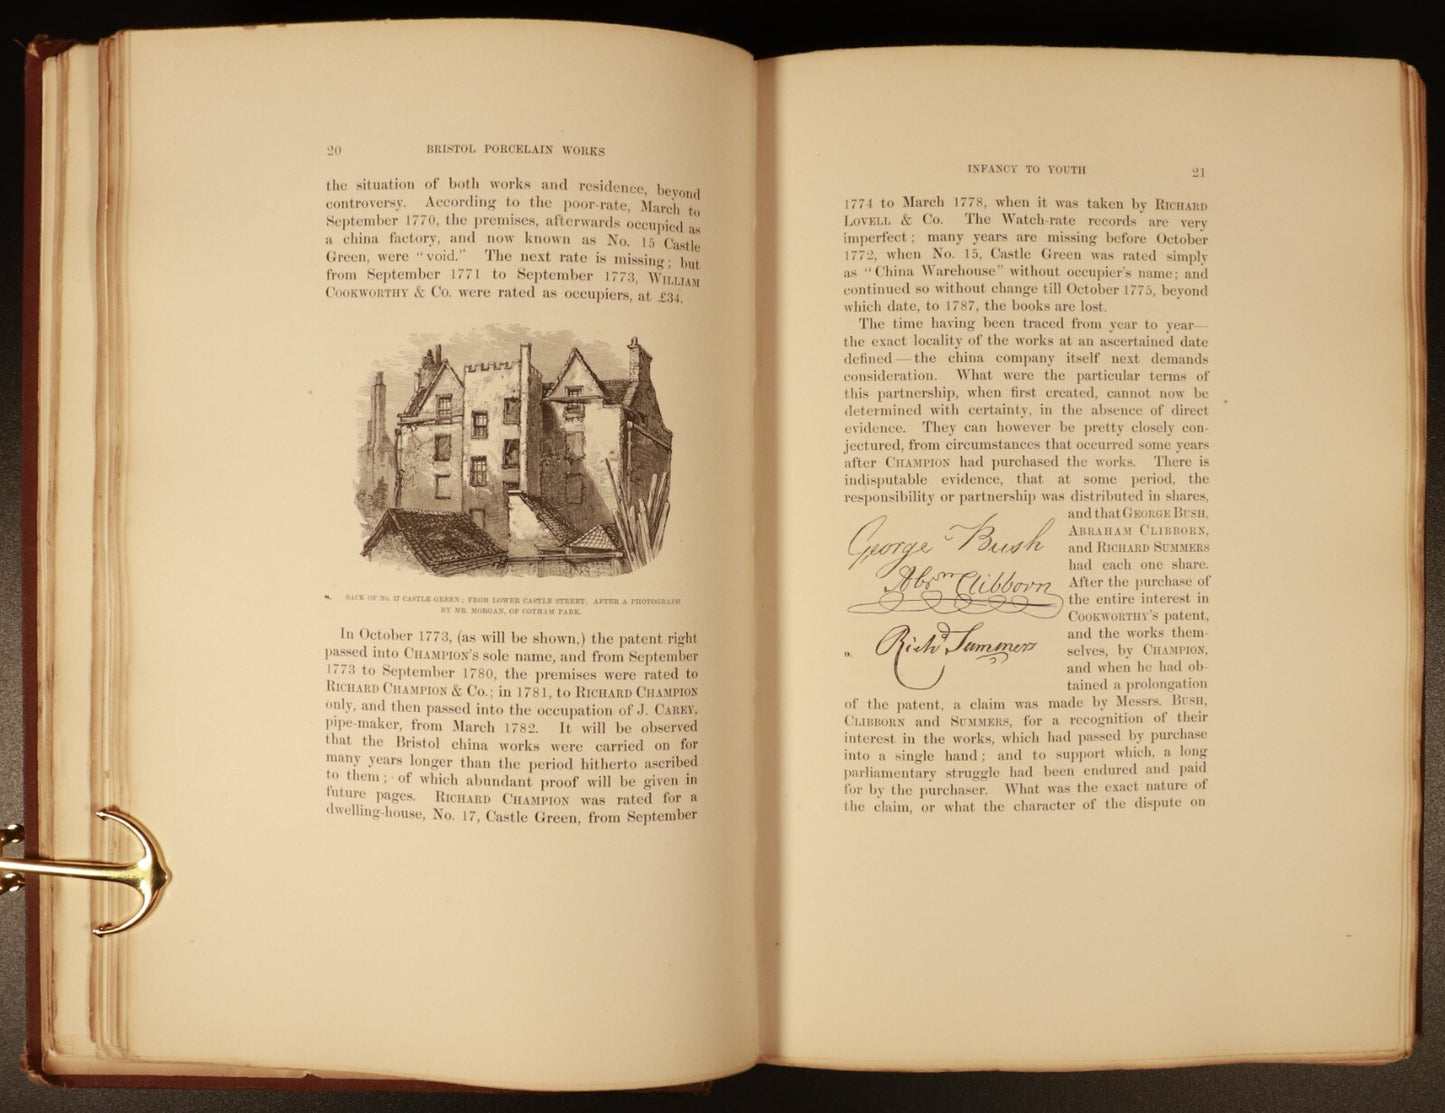 20 BRISTOL PORCELAIN WORKS
the situation of both works and residence, beyond
controversy. According to the poor-rate, March to
September 1770, the premises, afterwards occupied as
a china factory, and now known as No. 15 Castle
Green, were “void.” The next rate is missing; but
from September 1771 to September 1773, WILLIAM
COOKWORTHY & Co. were rated as occupiers, at £34.
8. BACK OF No. 17 CASTLE GREEN; FROM LOWER CASTLE STREET. AFTER A PHOTOGRAPH
BY MR. MORGAN, OF COTHAM PARK.
In October 1773, (as will be shown,) the patent right
passed into CHAMPION'S sole name, and from September
1773 to September 1780, the premises were rated to
RICHARD CHAMPION & Co.; in 1781, to RICHARD CHAMPION
only, and then passed into the occupation of J. CAREY,
pipe-maker, from March 1782. It will be observed
that the Bristol china works were carried on for
many years longer than the period hitherto ascribed
to them; of which abundant proof will be given in
future pages. RICHARD CHAMPION was rated for a
dwelling-house, No. 17, Castle Green, from September
INFANCY TO YOUTH 21
1774 to March 1778, when it was taken by RICHARD
LOVELL & Co. The Watch-rate records are very
imperfect; many years are missing before October
1772, when No. 15, Castle Green was rated simply
as “China Warehouse” without occupier's name; and
continued so without change till October 1775, beyond
which date, to 1787, the books are lost.
The time having been traced from year to year—
the exact locality of the works at an ascertained date
defined—the china company itself next demands
consideration. What were the particular terms of
this partnership, when first created, cannot now be
determined with certainty, in the absence of direct
evidence. They can however be pretty closely con-
jectured, from circumstances that occurred some years
after CHAMPION had purchased the works. There is
indisputable evidence, that at some period, the
responsibility or partnership was distributed in shares,
and that GEORGE BUSH,
ABRAHAM CLIBBORN,
and RICHARD SUMMERS
had each one share.
After the purchase of
the entire interest in
COOKWORTHY'S patent,
and the works them-
selves, by CHAMPION,
and when he had ob-
tained a prolongation
George Bush
Abrm Clibborn
9. Richd Summers
of the patent, a claim was made by Messrs. BUSH,
CLIBBORN and SUMMERS, for a recognition of their
interest in the works, which had passed by purchase
into a single hand; and to support which, a long
parliamentary struggle had been endured and paid
for by the purchaser. What was the exact nature of
the claim, or what the character of the dispute on